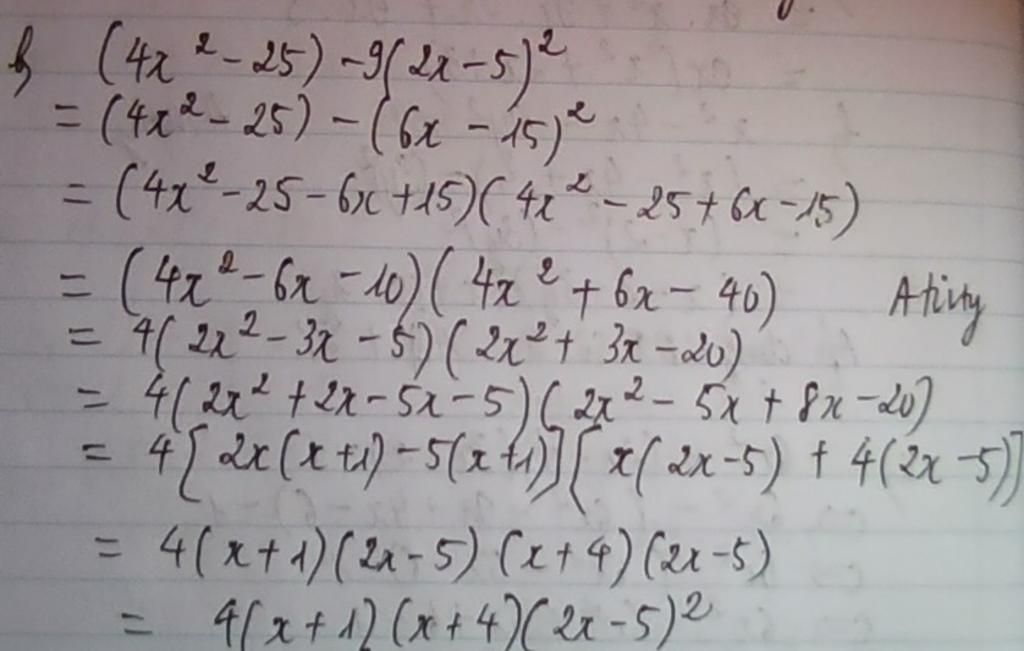 b) (4x² - 25) - 9(2x - 5)²
= (4x² - 25) - (6x - 15)²
= (4x² - 25 - 6x + 15)(4x² - 25 + 6x - 15)
= (4x² - 6x - 10)(4x² + 6x - 40)
Ativty
= 4(2x² - 3x - 5)(2x² + 3x - 20)
= 4(2x² + 2x - 5x - 5)(2x² - 5x + 8x - 20)
= 4[2x(x+1) - 5(x+1)][x(2x-5) + 4(2x-5)]
= 4(x+1)(2x-5)(x+4)(2x-5)
= 4(x+1)(x+4)(2x-5)²